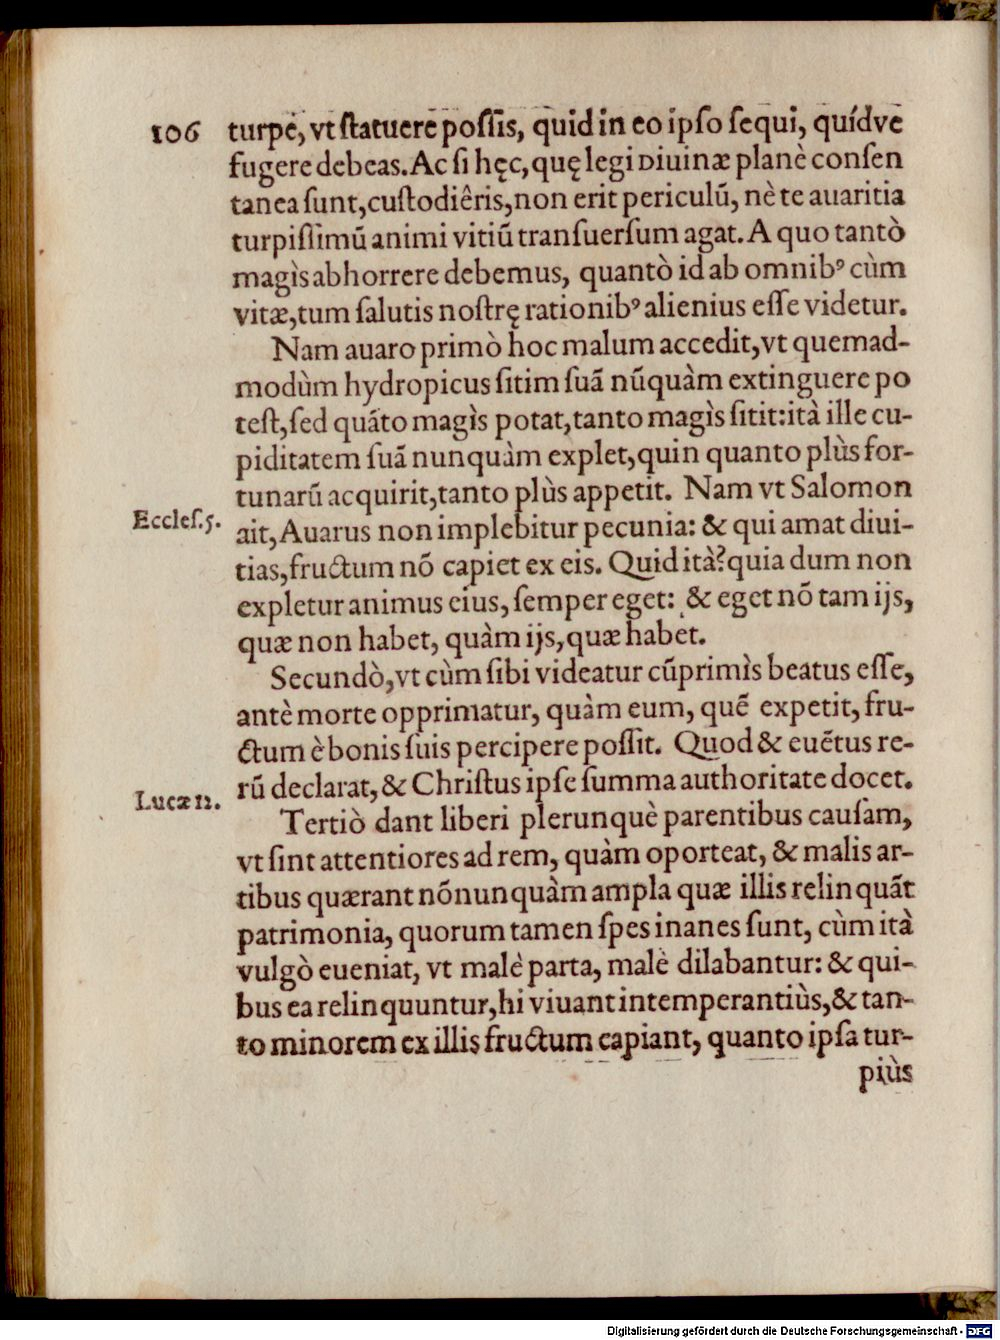 106 turpe, vt ſtatuere poſſis, quid in eo ipſo ſequi, quídve
fugere debeas. Ac ſi hęc, quę legi Diuinæ planè conſen
tanea ſunt, cuſtodiêris, non erit periculũ, nè te auaritia
turpiſſimũ animi vitiũ tranſuerſum agat. A quo tantò
magìs abhorrere debemus, quantò id ab omnibꝰ cùm
vitæ, tum ſalutis noſtrę rationibꝰ alienius eſſe videtur.
Nam auaro primò hoc malum accedit, vt quemad-
modùm hydropicus ſitim ſuã nũquàm extinguere po
teſt, ſed quãto magìs potat, tanto magìs ſitit: ità ille cu-
piditatem ſuã nunquàm explet, quin quanto plùs for-
tunarũ acquirit, tanto plùs appetit. Nam vt Salomon
Eccleſ.5. ait, Auarus non implebitur pecunia: & qui amat diui-
tias, fructum nõ capiet ex eis. Quid ità? quia dum non
expletur animus eius, ſemper eget: & eget nõ tam ijs,
quæ non habet, quàm ijs, quæ habet.
Secundò, vt cùm ſibi videatur cũprimìs beatus eſſe,
antè morte opprimatur, quàm eum, quẽ expetit, fru-
ctum è bonis ſuis percipere poſſit. Quod & euẽtus re-
Lucæ 12. rũ declarat, & Chriſtus ipſe ſumma authoritate docet.
Tertiò dant liberi plerunquè parentibus cauſam,
vt ſint attentiores ad rem, quàm oporteat, & malis ar-
tibus quærant nõnunquàm ampla quæ illis relinquãt
patrimonia, quorum tamen ſpes inanes ſunt, cùm ità
vulgò eueniat, vt malè parta, malè dilabantur: & qui-
bus ea relinquuntur, hi viuant intemperantiùs, & tan-
to minorem ex illis fructum capiant, quanto ipſa tur-
piùs
Digitalisierung gefördert durch die Deutsche Forschungsgemeinschaft - DFG